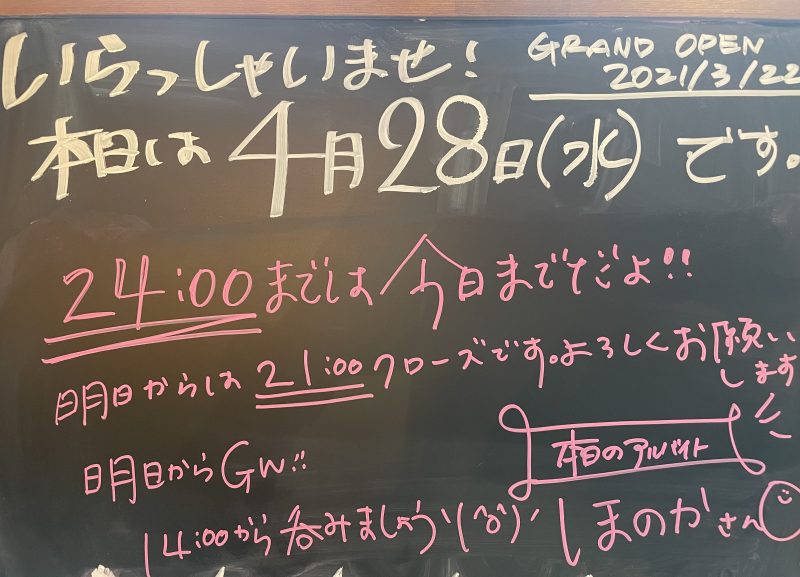 いらっしゃいませ!
GRAND OPEN
2021/3/22
本日は4月28日(水)です。
24:00までは今日までだよ!!
明日からは21:00クローズです。よろしくお願い
します
明日からGW!!
本日のアルバイト
14:00から呑みましょう\(^o^)/
しまのかさん